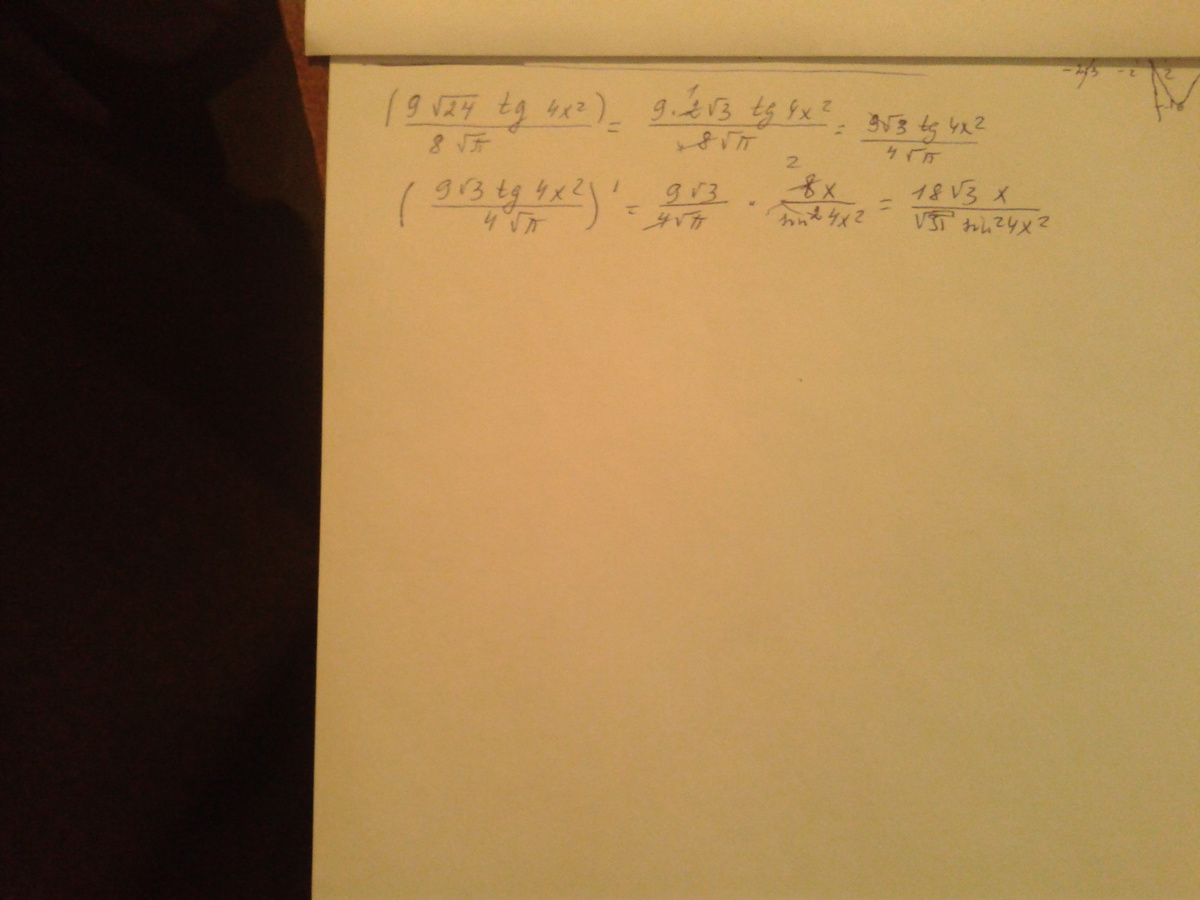 -2/3 -2 2
(9√24 tg 4x²)/(8√π) = (9·2√3 tg 4x²)/(8√π) = (9√3 tg 4x²)/(4√π)
((9√3 tg 4x²)/(4√π))' = (9√3)/(4√π) · (8x)/(sin²4x²) = (18√3 x)/(√π sin²4x²)